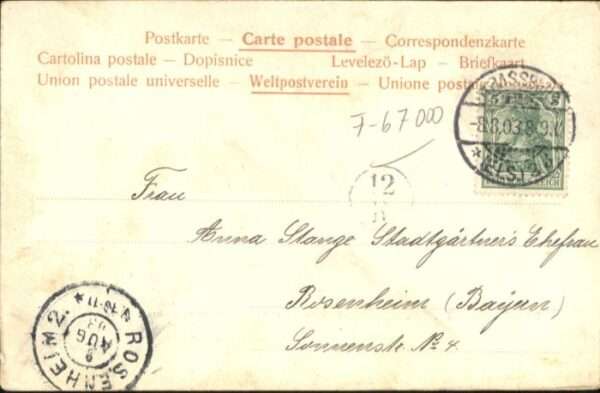 Postkarte — Carte postale — Correspondenzkarte
Cartolina postale — Dopisnice Levelező-Lap — Briefkaart
Union postale universelle — Weltpostverein — Unione postale
STRASSBURG
-8.8.03.8-9.V
* (ELS) 2
REICH
7-67000
12
Frau
Anna Stange Stadtgärtners Ehefrau
Rosenheim (Bayern)
Sonnenstr. No 4.
ROSENHEIM 2.
9
AUG
03